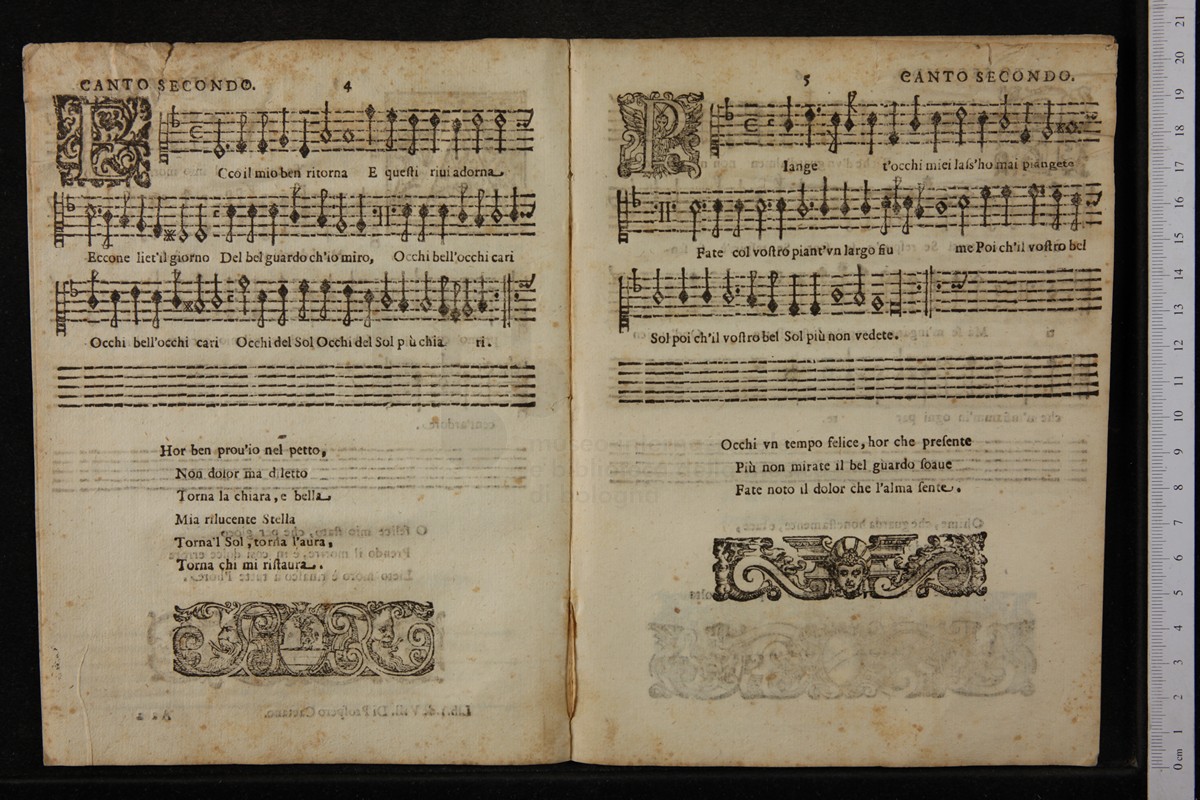 CANTO SECONDO. 4
ECco il mio ben ritorna E queſti riui adorna
Eccone liet'il giorno Del bel guardo ch'io miro, Occhi bell'occhi cari
Occhi bell'occhi cari Occhi del Sol Occhi del Sol più chia ri.
Hor ben prou'io nel petto,
Non dolor ma diletto
Torna la chiara, e bella
Mia rilucente Stella
Torna'l Sol, torna l'aura,
Torna chi mi riſtaura.
5 CANTO SECONDO.
PIange t'occhi miei laſs'ho mai piangete
Fate col voſtro piant'vn largo fiu me Poi ch'il voſtro bel
Sol poi ch'il voſtro bel Sol più non vedete.
Occhi vn tempo felice, hor che preſente
Più non mirate il bel guardo ſoaue
Fate noto il dolor che l'alma ſente.